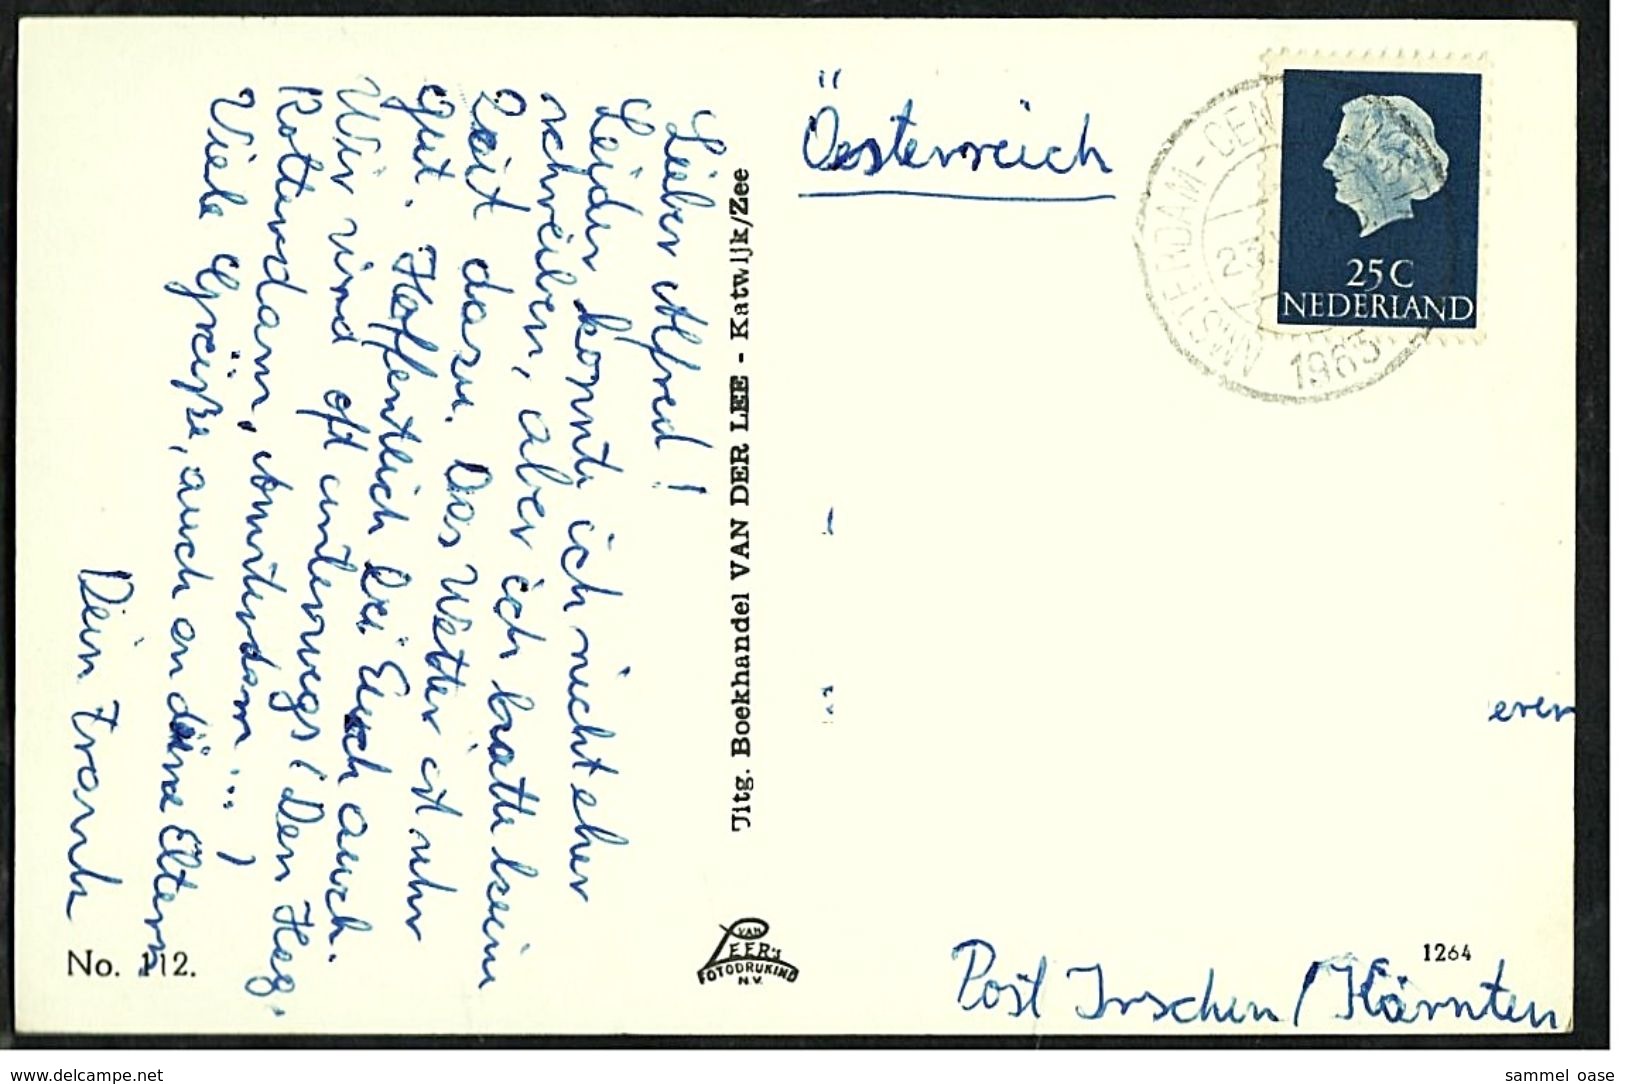 Lieber Alfred!
Leider konnte ich nicht eher
schreiben, aber ich hatte keine
Zeit dazu. Das Wetter ist sehr
gut. Hoffentlich bei Euch auch.
Wir sind oft unterwegs (Den Hag,
Rotterdam, Amsterdam...)
Viele Grüße, auch an deine Eltern
Dein Frank
No. 112.
Uitg. Boekhandel VAN DER LEE - Katwijk/Zee
VAN
LEER'S
FOTODRUKIND
N.V.
Oesterreich
AMSTERDAM-CEN
23
1965
25 C
NEDERLAND
1264
Post Irschen / Kärnten
www.delcampe.net
sammel_oase